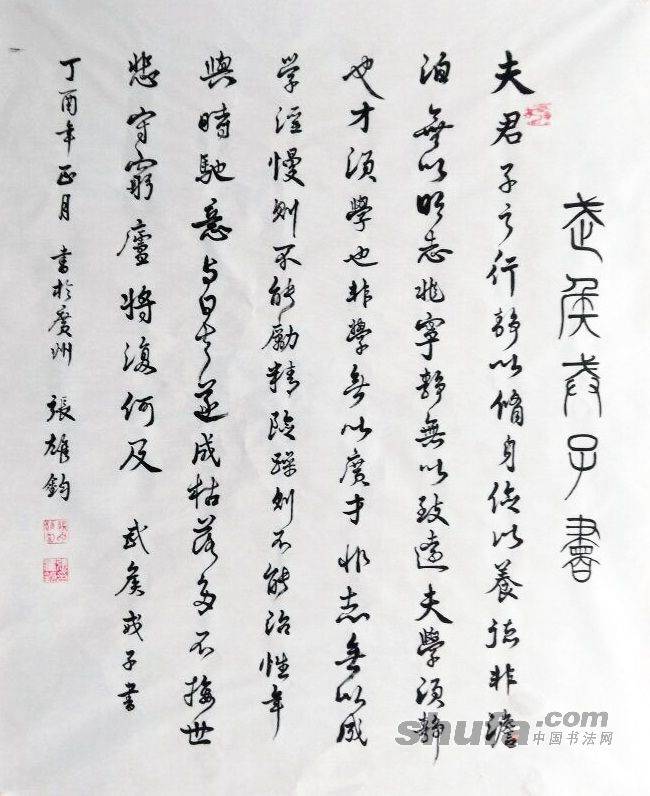 武侯戒子書
夫君子之行靜以脩身儉以養德非澹
泊無以明志非寧靜無以致遠夫學須靜
也才須學也非學無以廣才非志無以成
学淫慢則不能勵精險躁則不能治性年
與時馳意与日去遂成枯落多不接世
悲守窮廬將復何及 武侯戒子書
丁酉年正月 書於廣州 張雄鈞
shufa.com
中国书法网